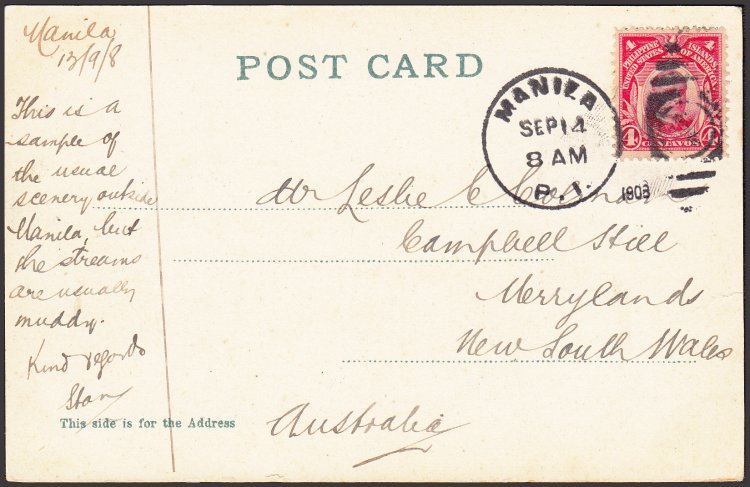 Manila
13/9/8
This is a
sample of
the usual
scenery outside
Manila, but
the streams
are usually
muddy.
Kind regards
Stan
POST CARD
4 PHILIPPINE ISLANDS 4
UNITED STATES OF AMERICA
4 CENTAVOS 4
MANILA
SEP 14
8 AM
P. I.
190
Mr Leslie C
Campbell Hill
Merrylands
New South Wales
Australia
This side is for the Address